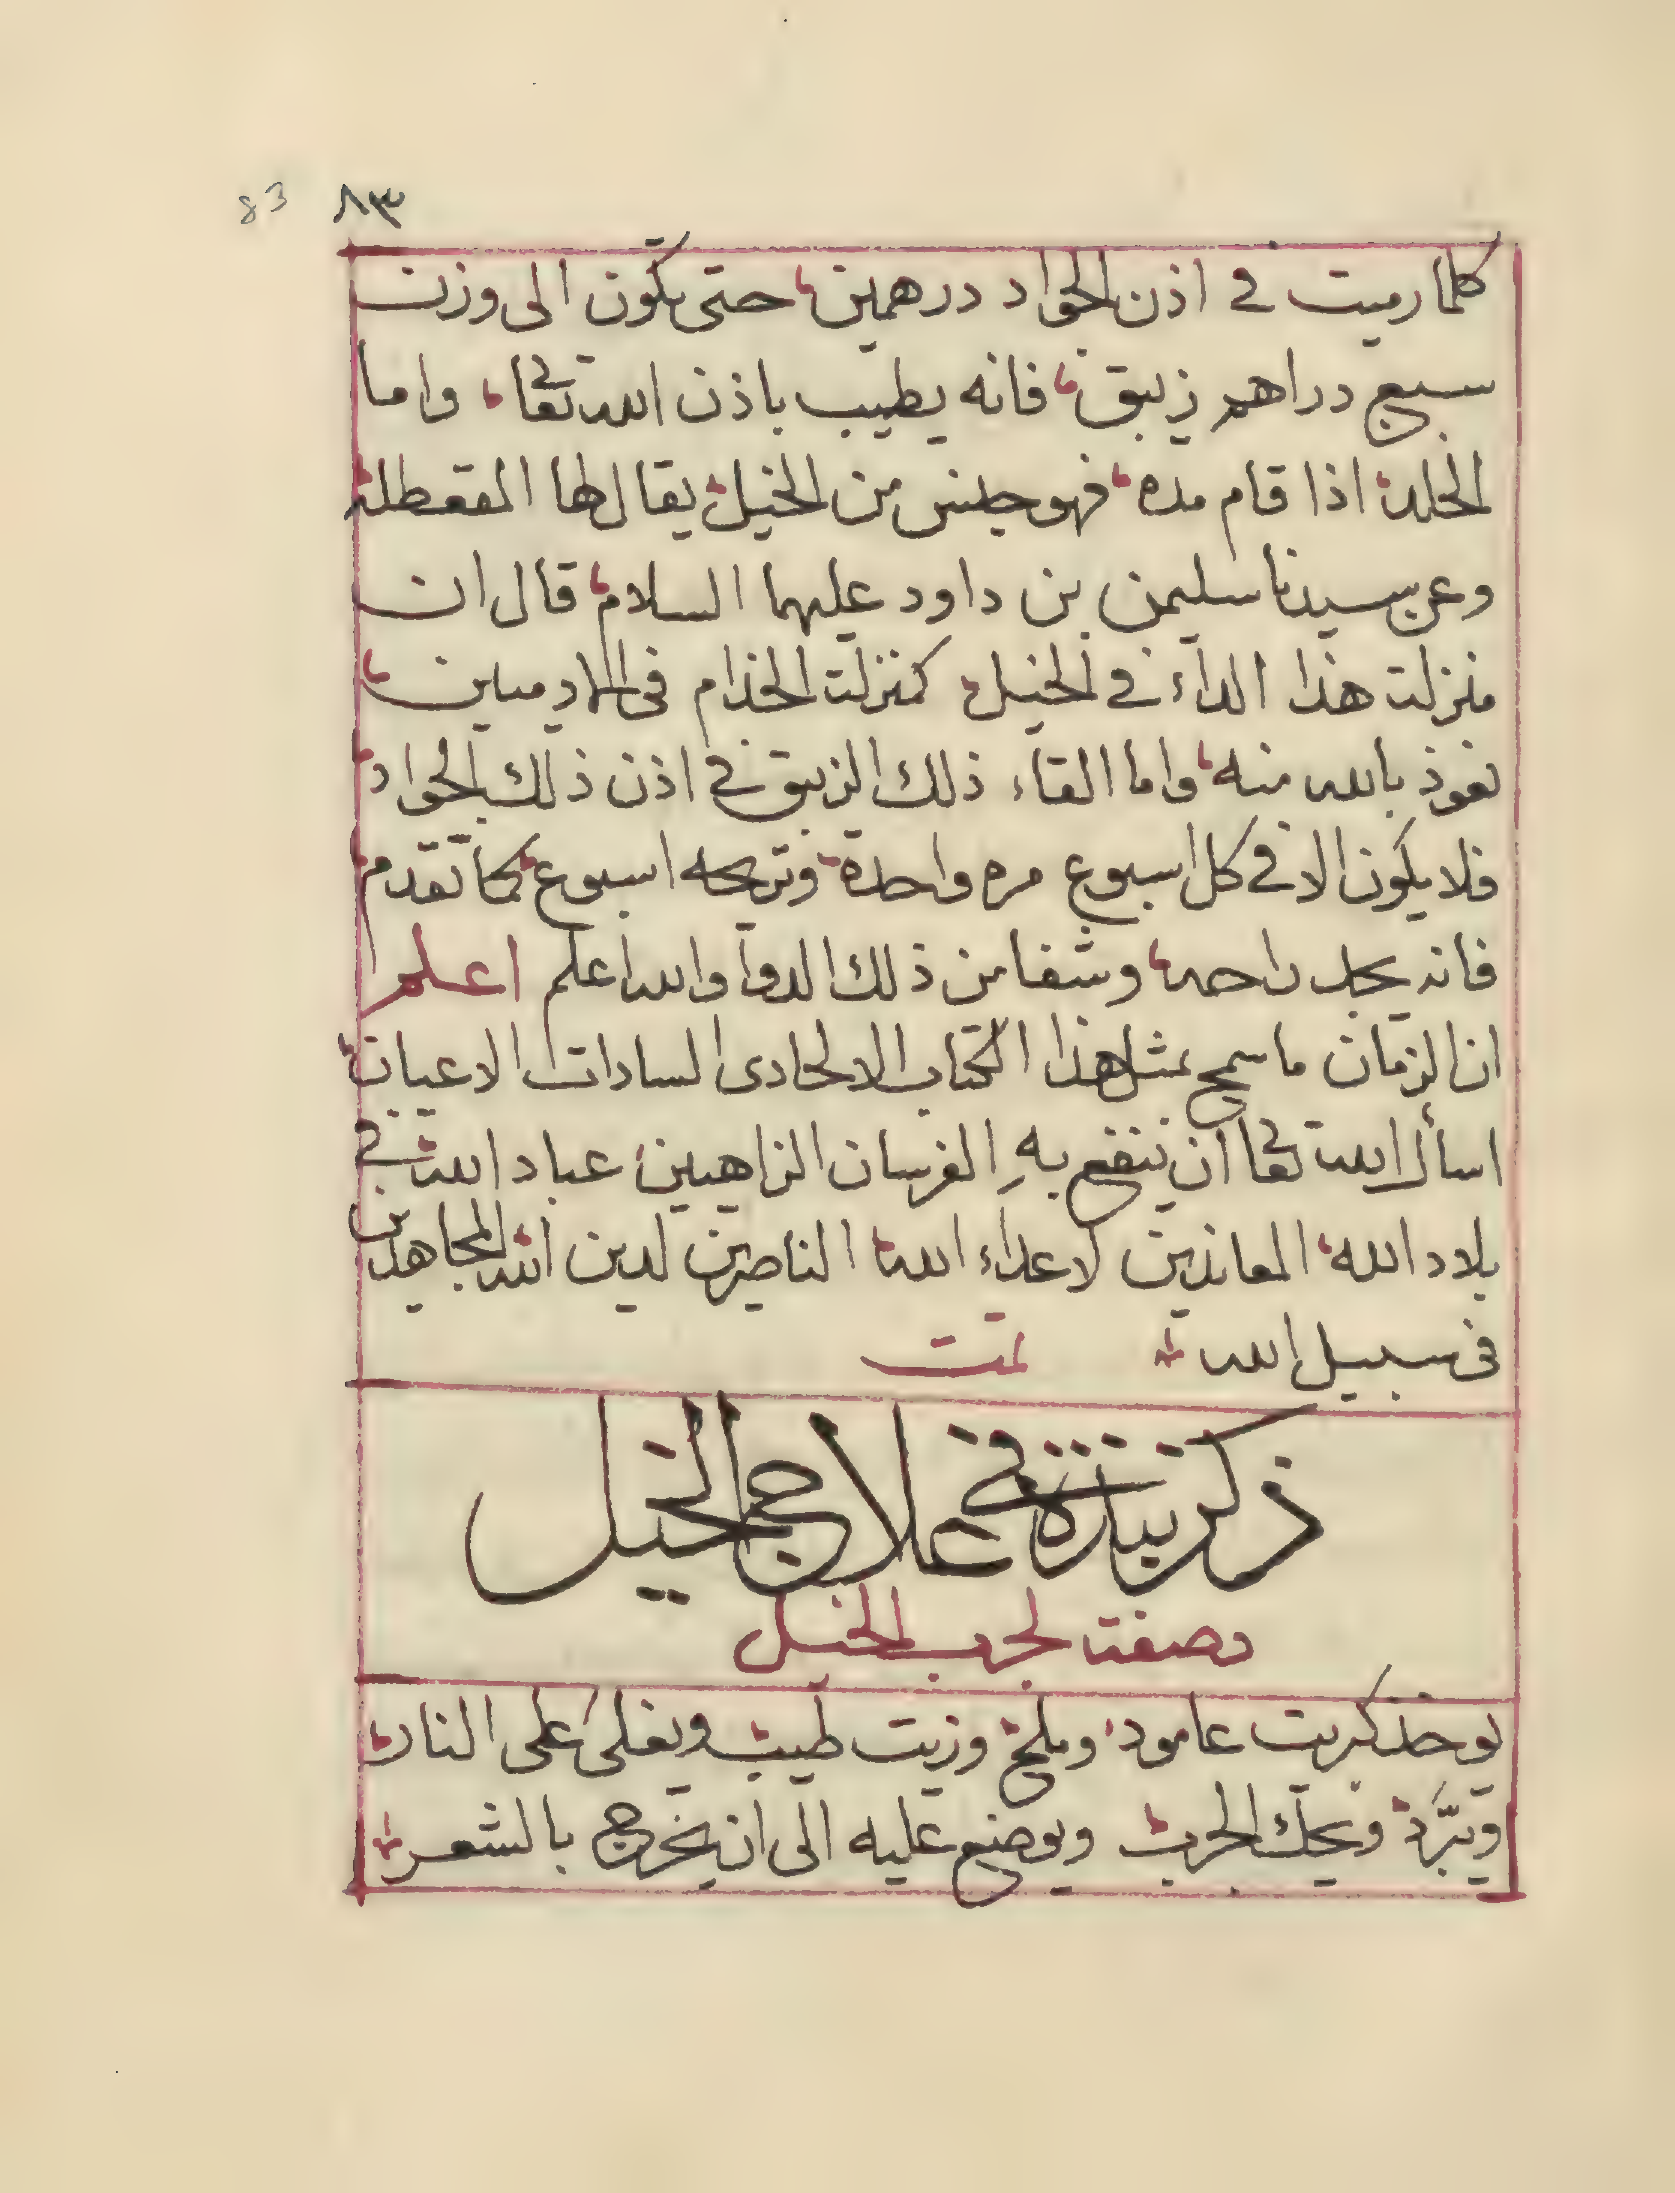 83 ٨٣
كلما رميت في اذن الجواد درهمين حتى يكون الى وزن
سبع دراهم زيبق فانه يطيب باذن الله تعا واما
الخلد اذا قام مده فهو جنس من الخيل يقال لها المقعطله
وعن سيدنا سليمن بن داود عليهما السلام قال ان
منزلت هذا الداء في الخيل كمنزلت الجذام في الادميين
نعوذ بالله منه واما القاء ذلك الزيبق في اذن ذلك الجواد
فلا يكون الا في كل اسبوع مره واحدة وتريحه اسبوع كما تقدم
فانه يجد راحه وشفا من ذلك الدوا والله اعلم اعلم
ان الزمان ما سمح بمثل هذا الكتاب الا لحادى السادات الاعيان
اسأل الله تعا ان ينفع به الفرسان الزاهيين عباد الله في
بلاد الله المعاندين لاعداء الله الناصرين لدين الله المجاهدين
في سبيل الله تمت
ذكر بيازرة في علاج الخيل
وصفت لجرب الخيل
يوخذ كبريت عامود وملح وزيت طيب ويغلى على النار
ويبرّد ويحك الجرب ويوضع عليه الى ان يخرج بالشعر